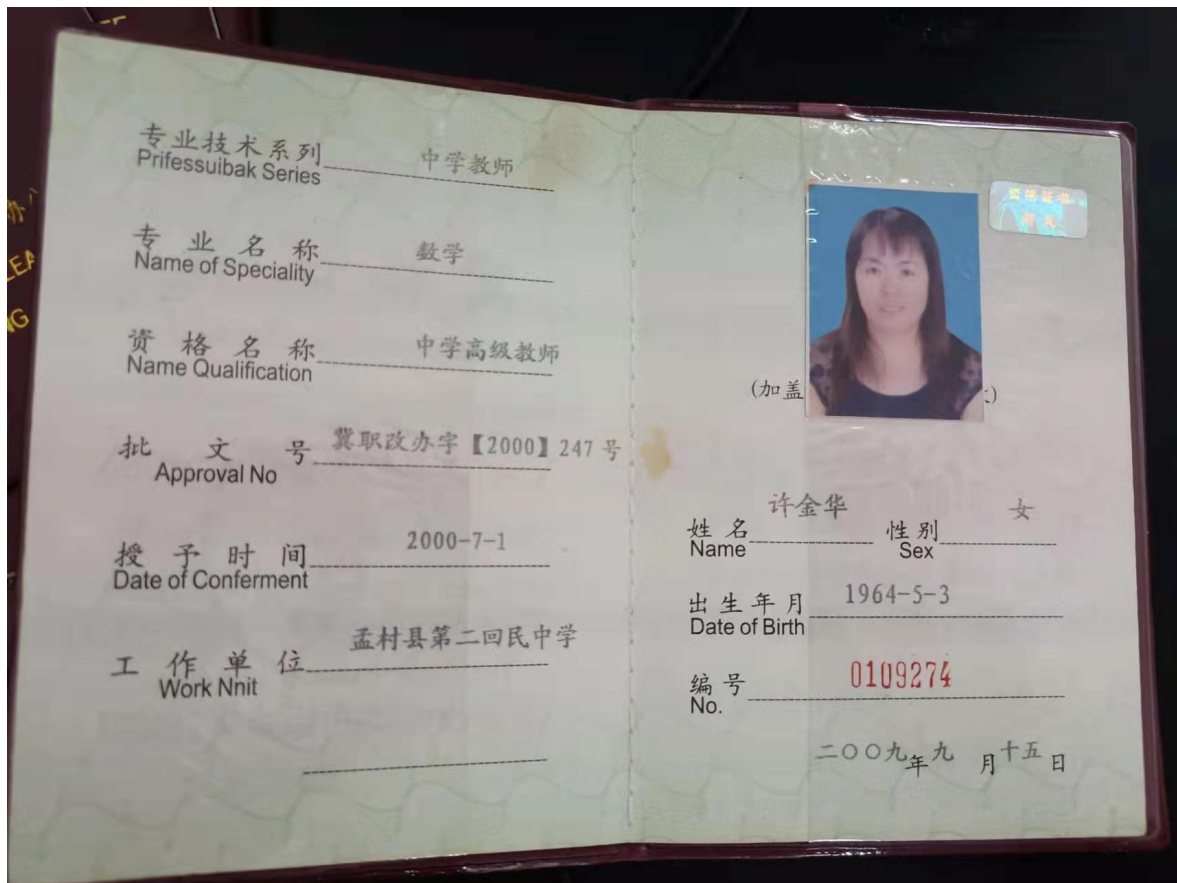 专业技术系列 中学教师
Prifessuibak Series
专业名称 数学
Name of Speciality
资格名称 中学高级教师
Name Qualification
批文号 冀职改办字【2000】247号
Approval No
授予时间 2000-7-1
Date of Conferment
工作单位 孟村县第二回民中学
Work Nnit
资格证书
(加盖
)
姓名 许金华 性别 女
Name Sex
出生年月 1964-5-3
Date of Birth
编号 0109274
No.
二〇〇九年九月十五日